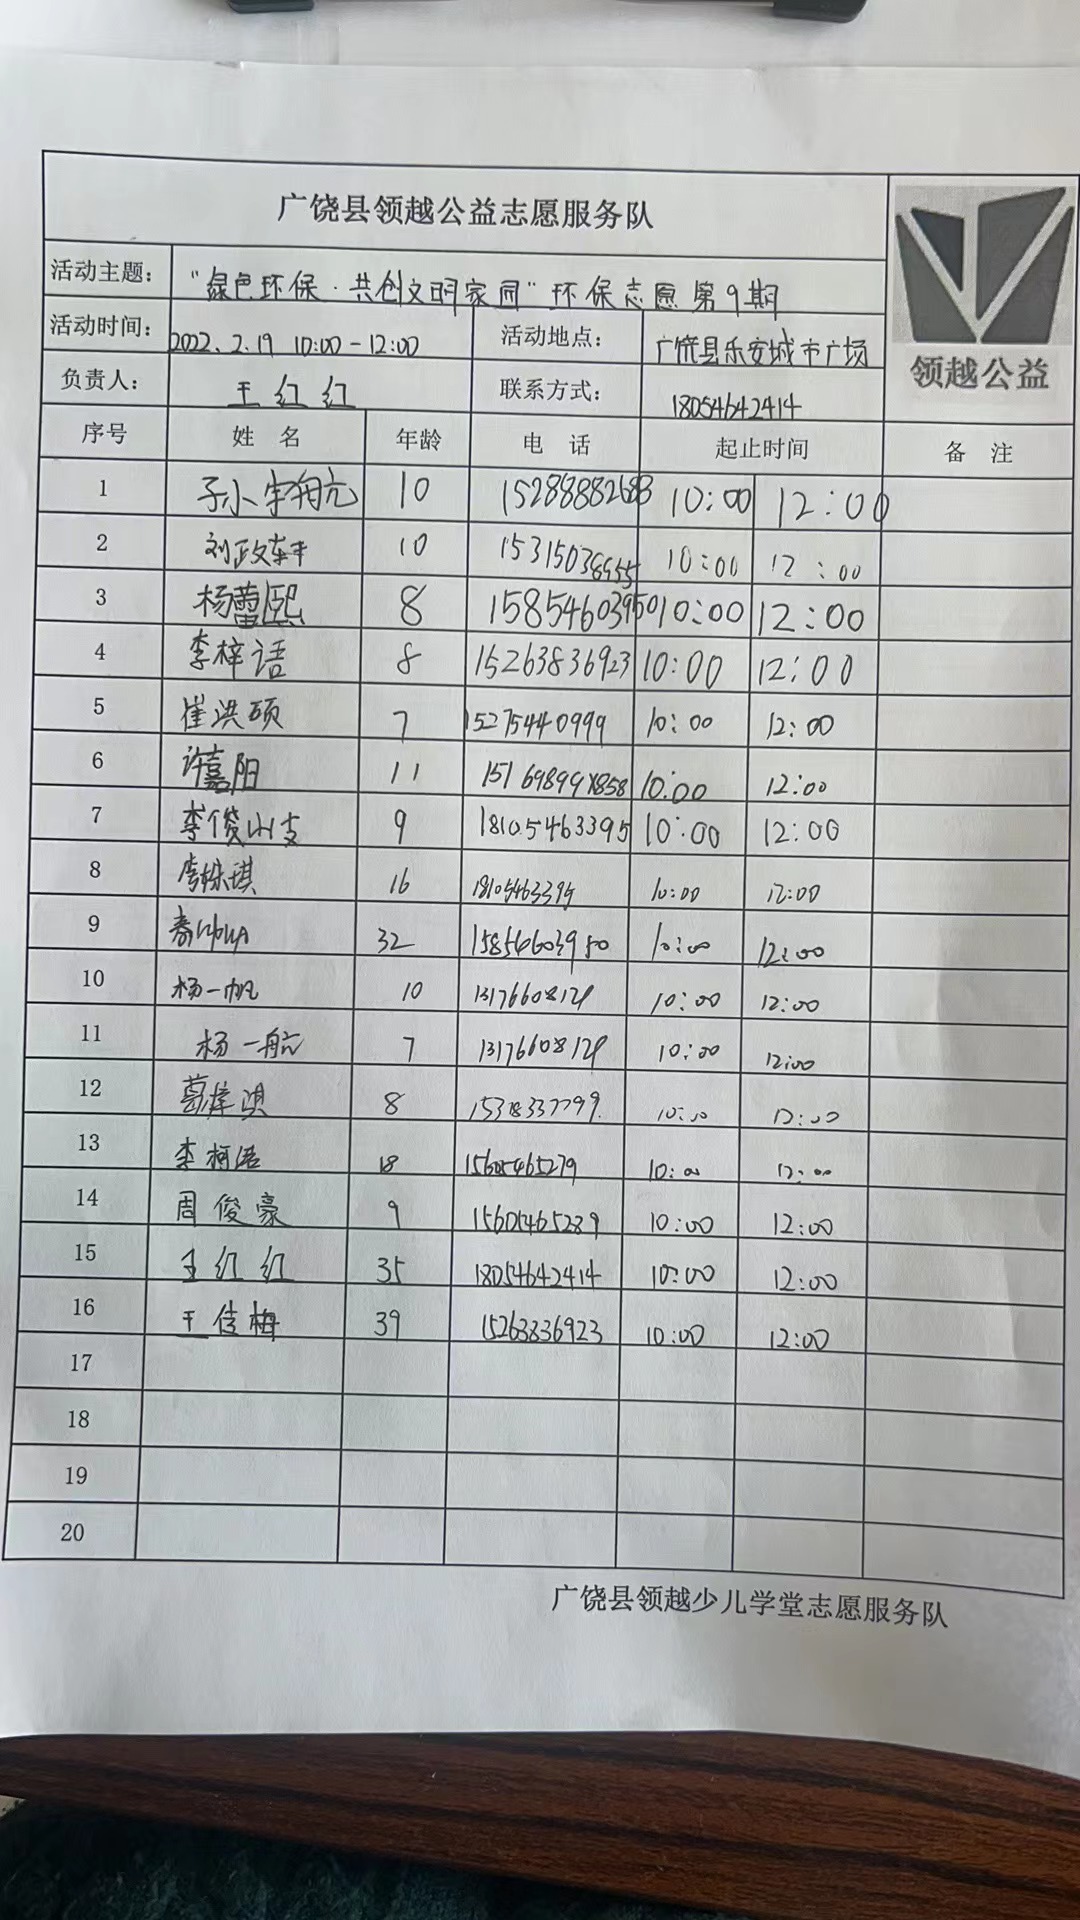 广饶县领越公益志愿服务队
领越公益
活动主题： "绿色环保·共创文明家园"环保志愿第9期
活动时间： 2022.2.19 10:00-12:00 活动地点： 广饶县乐安城市广场
负责人： 王红红 联系方式： 18054642414
序号 姓名 年龄 电话 起止时间 备注
1 孙宇航 10 15288882688 10:00 12:00
2 刘政轩 10 10:00 12:00
3 杨蕾熙 8 15854603950 10:00 12:00
4 李梓语 8 15263836923 10:00 12:00
5 崔洪硕 7 15275440999 10:00 12:00
6 许嘉阳 11 10:00 12:00
7 李俊岐 9 18105463395 10:00 12:00
8 16 18105463395 10:00 12:00
9 32 15854603950 10:00 12:00
10 杨一帆 10 10:00 12:00
11 杨一航 7 10:00 12:00
12 8 10:00 12:00
13 李柯语 18 15605465279 10:00 12:00
14 周俊豪 9 15605465289 10:00 12:00
15 王红红 35 18054642414 10:00 12:00
16 王佳梅 39 15263836923 10:00 12:00
17
18
19
20
广饶县领越少儿学堂志愿服务队